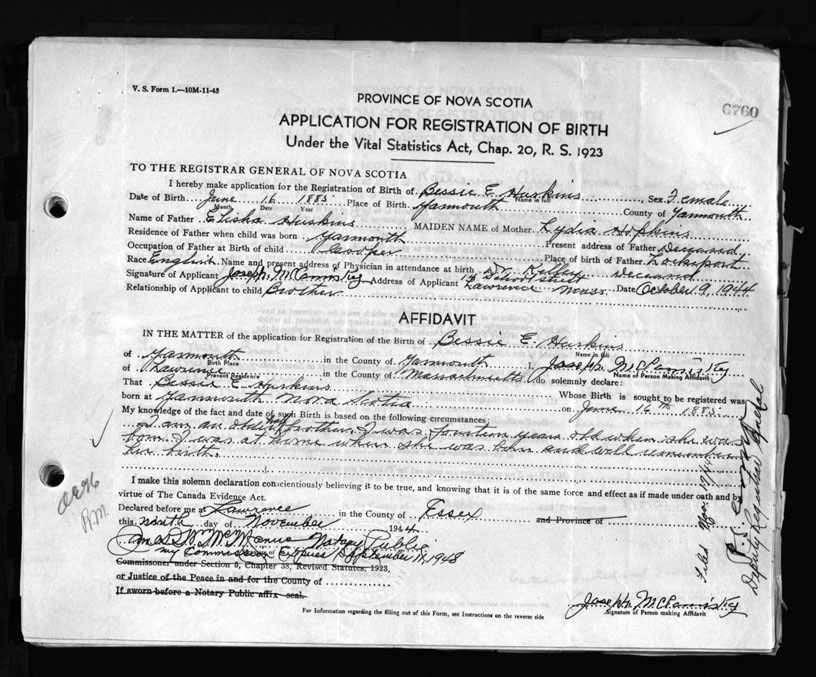 V. S. Form 1.—10M-11-43
6760
PROVINCE OF NOVA SCOTIA
APPLICATION FOR REGISTRATION OF BIRTH
Under the Vital Statistics Act, Chap. 20, R. S. 1923
TO THE REGISTRAR GENERAL OF NOVA SCOTIA
I hereby make application for the Registration of Birth of Bessie E Huskins Sex Female
Name in full
Date of Birth June 16 1883 Place of Birth Yarmouth County of Yarmouth
Month Date Year
Name of Father Elisha Huskins MAIDEN NAME of Mother Lydia Hopkins
Residence of Father when child was born Yarmouth Present address of Father Deceased
Occupation of Father at Birth of child Cooper Place of Birth of Father Lockeport
Race English Name and present address of Physician in attendance at birth Deceased
Signature of Applicant Joseph Address of Applicant Lawrence Mass. Date October 9, 1944
Relationship of Applicant to child Brother
AFFIDAVIT
IN THE MATTER of the application for Registration of the Birth of Bessie E. Huskins
Name in full
of Yarmouth in the County of Yarmouth I, Joseph
Birth Place
Name of Person Making Affidavit
of Lawrence in the County of Massachusetts do solemnly declare:
Present Residence
That Bessie E Huskins Whose Birth is sought to be registered was
born at Yarmouth Nova Scotia on June 16th 1883
My knowledge of the fact and date of such Birth is based on the following circumstances:
I am an older half brother. I was fourteen years old when she was
born. I was at home when she was born and well remember
her birth.
I make this solemn declaration conscientiously believing it to be true, and knowing that it is of the same force and effect as if made under oath and by
virtue of The Canada Evidence Act.
Declared before me at Lawrence in the County of Essex and Province of
this ninth day of November 1944
James W. McManus Notary Public
My Commission Expires September 11, 1948
Commissioner under Section 5, Chapter 38, Revised Statutes, 1923,
or Justice of the Peace in and for the County of
If sworn before a Notary Public affix seal.
Joseph
Signature of Person making Affidavit
For Information regarding the filling out of this Form, see Instructions on the reverse side
Filed Nov.
Deputy Registrar